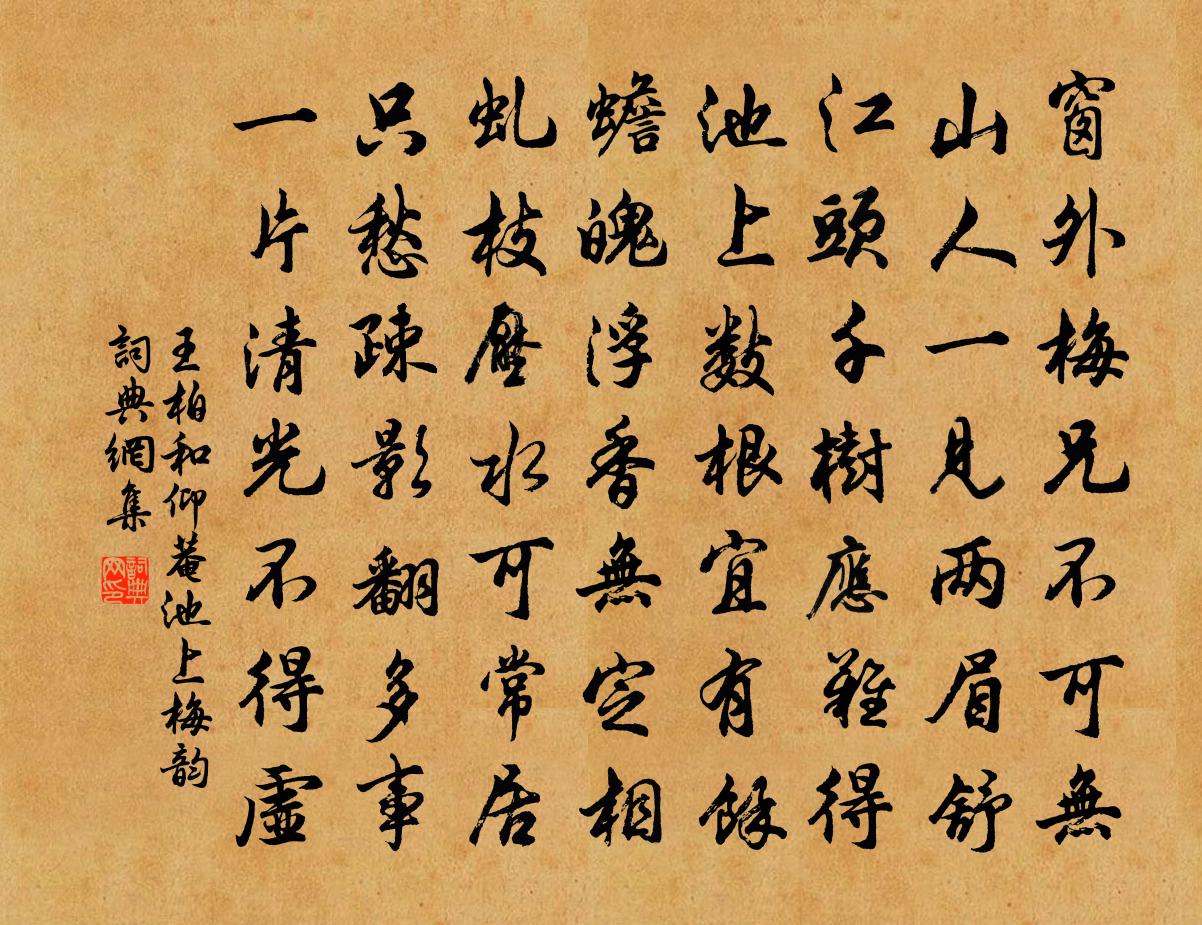 窗外梅兄不可無
山人一見两眉舒
江頭千樹應難得
池上數根宜有餘
蟾魄浮香無定相
虬枝壓水可常居
只愁疎影翻多事
一片清光不得虛
王柏和仰菴池上梅韵
詞典網集
詞典网印